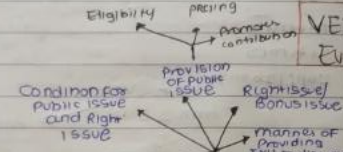 Eligibility
pricing
promoter
contribution
VE
Ev
provision
of public
issue
Condition for
public issue
and Right
issue
Rightissue/
Bonus issue
manner of
Providing